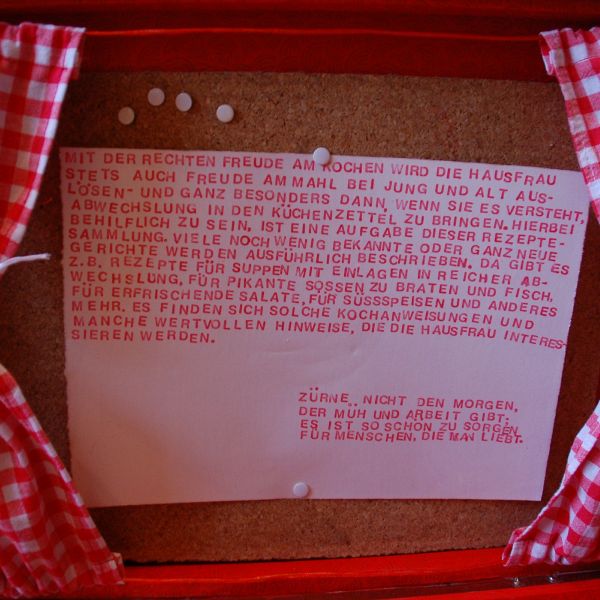 MIT DER RECHTEN FREUDE AM KOCHEN WIRD DIE HAUSFRAU
STETS AUCH FREUDE AM MAHL BEI JUNG UND ALT AUS-
LÖSEN- UND GANZ BESONDERS DANN, WENN SIE ES VERSTEHT,
ABWECHSLUNG IN DEN KÜCHENZETTEL ZU BRINGEN. HIERBEI
BEHILFLICH ZU SEIN, IST EINE AUFGABE DIESER REZEPTE-
SAMMLUNG. VIELE NOCH WENIG BEKANNTE ODER GANZ NEUE
GERICHTE WERDEN AUSFÜHRLICH BESCHRIEBEN. DA GIBT ES
Z.B. REZEPTE FÜR SUPPEN MIT EINLAGEN IN REICHER AB-
WECHSLUNG, FÜR PIKANTE SOSSEN ZU BRATEN UND FISCH,
FÜR ERFRISCHENDE SALATE, FÜR SÜSSSPEISEN UND ANDERES
MEHR. ES FINDEN SICH SOLCHE KOCHANWEISUNGEN UND
MANCHE WERTVOLLEN HINWEISE, DIE DIE HAUSFRAU INTERES-
SIEREN WERDEN.
ZÜRNE NICHT DEN MORGEN,
DER MÜH UND ARBEIT GIBT;
ES IST SO SCHÖN ZU SORGEN
FÜR MENSCHEN, DIE MAN LIEBT.